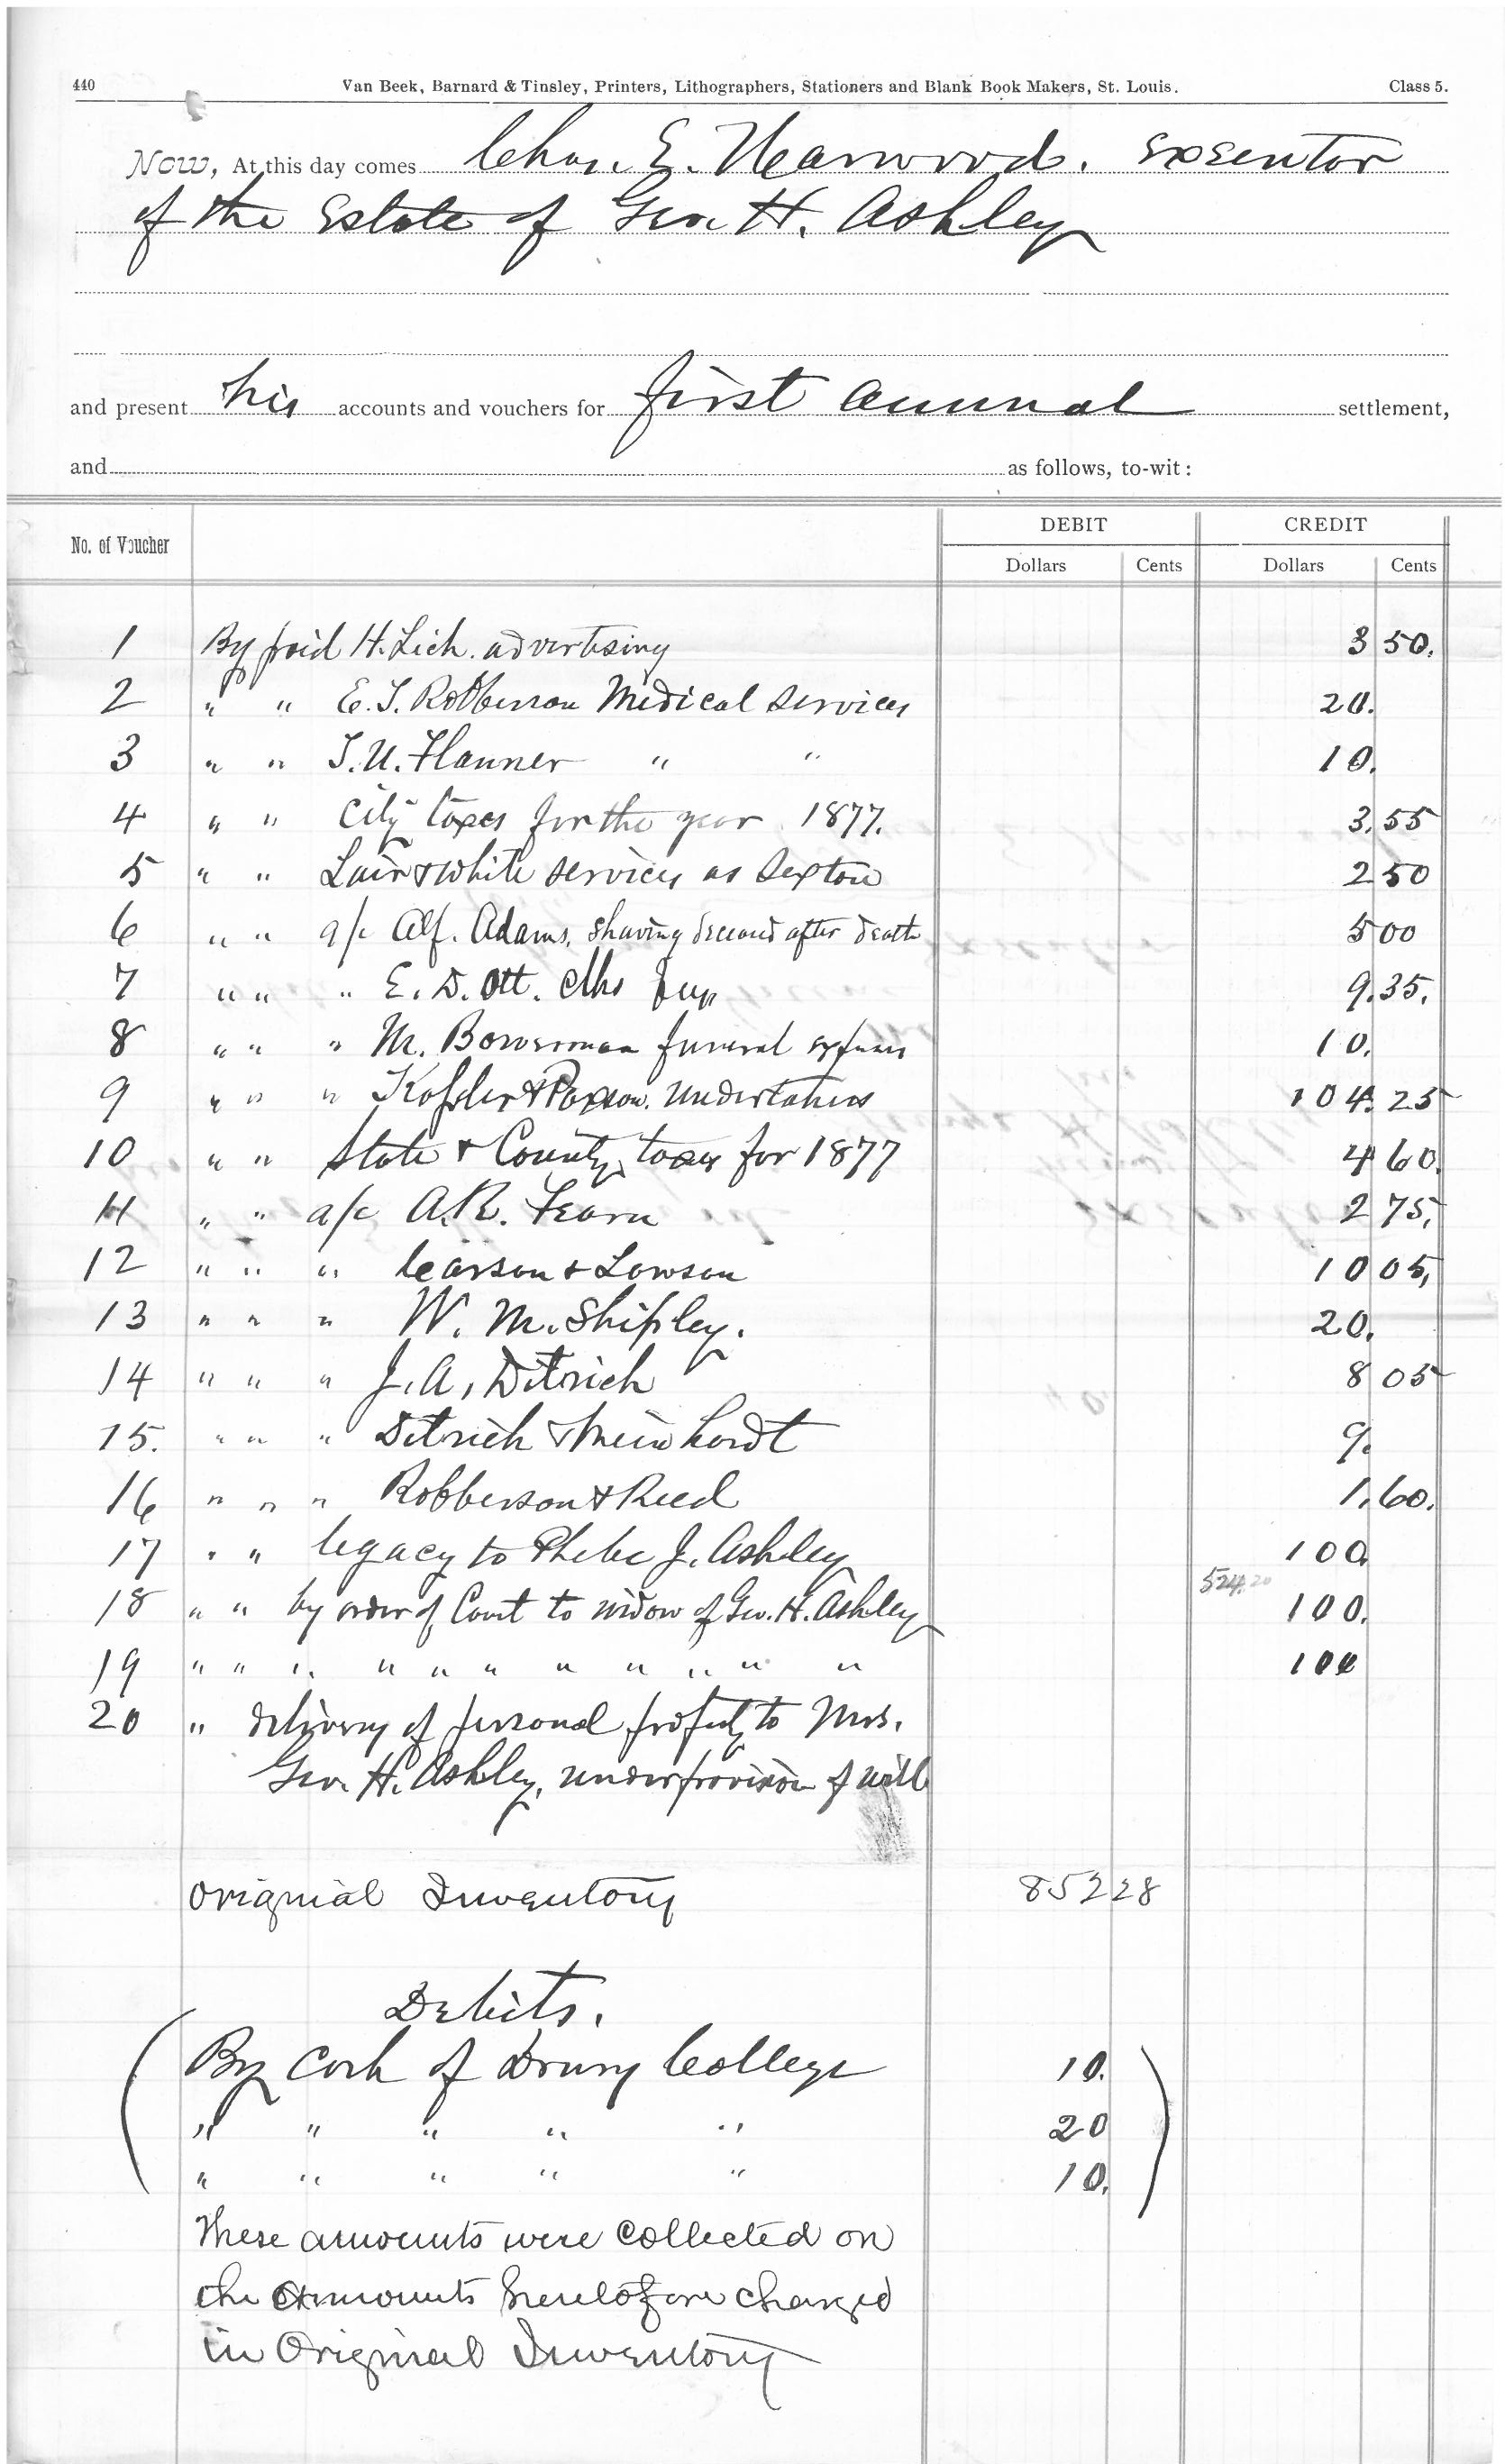 440 Van Beek, Barnard & Tinsley, Printers, Lithographers, Stationers and Blank Book Makers, St. Louis. Class 5.
Now, At this day comes Chas. E. Harwood. Executor
of the Estate of Geo. H. Ashley
and present his accounts and vouchers for first annual settlement,
and as follows, to-wit:
No. of Voucher DEBIT CREDIT
Dollars Cents Dollars Cents
1 By paid H. Lick. advertising 3 50.
2 " " E. T. Robberson Medical Services 20.
3 " " T. U. Flanner " " 10.
4 " " City taxes for the year 1877. 3. 55
5 " " Lair & White services as Sexton 2 50
6 " " a/c Alf. Adams, Shaving deceased after death 5 00
7 " " " E. D. Ott. 9. 35.
8 " " " M. Bowerman funeral expenses 10.
9 " " " & Paxson. Undertakers 104. 25
10 " " State & County taxes for 1877 4 60.
11 " " a/c A. R. Fearn 2 75.
12 " " " Carson & Lawson 10 05,
13 " " " W. M. Shipley. 20.
14 " " " J. A. Ditrich 8 05
15. " " " Ditrich & Meinhardt 9.
16 " " " Robberson & Reed 1. 60.
17 " " legacy to Phebe J. Ashley 100
524.20
18 " " by order of Court to widow of Geo. H. Ashley 100.
19 " " " " " " " " " " " 100
20 " delivery of personal property to Mrs.
Geo. H. Ashley, under provision of will
Orignial Inventory 852 28
Debits.
By Cash of Drury College 10.
" " " " " 20
" " " " " 10.
These amounts were collected on
the amounts heretofore charged
in Original Inventory